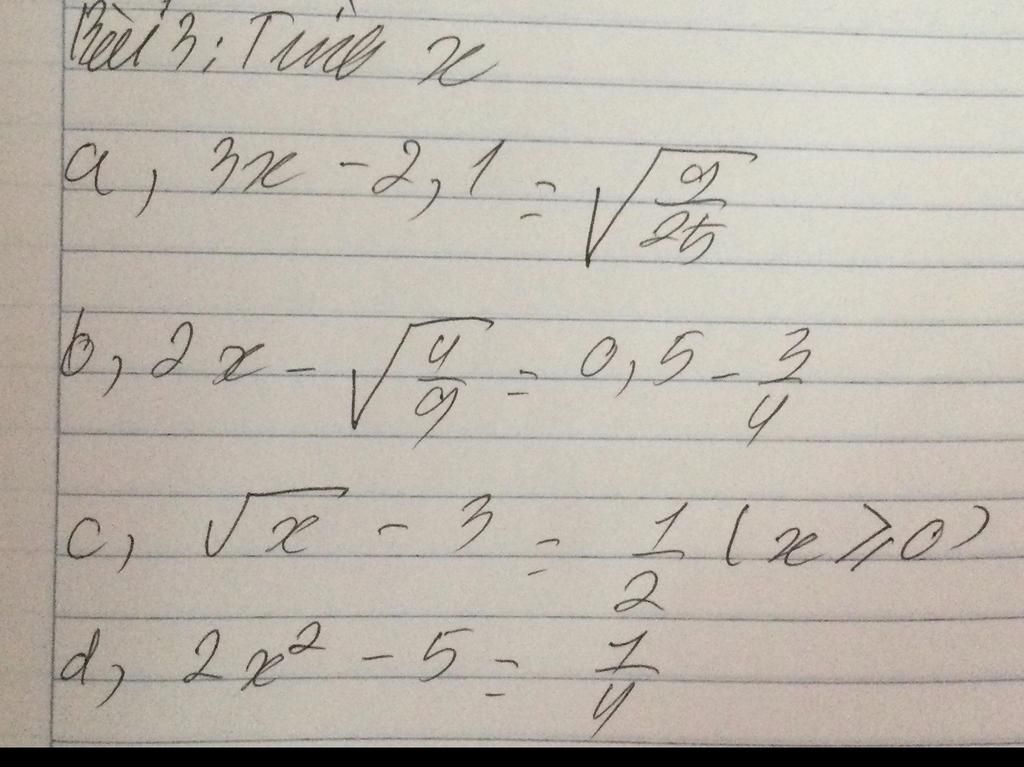 Bài 3: Tính x
a, 3x - 2,1 = √(9/25)
b, 2x - √(4/9) = 0,5 - 3/4
c, √x - 3 = 1/2 (x ≥ 0)
d, 2x² - 5 = 1/4